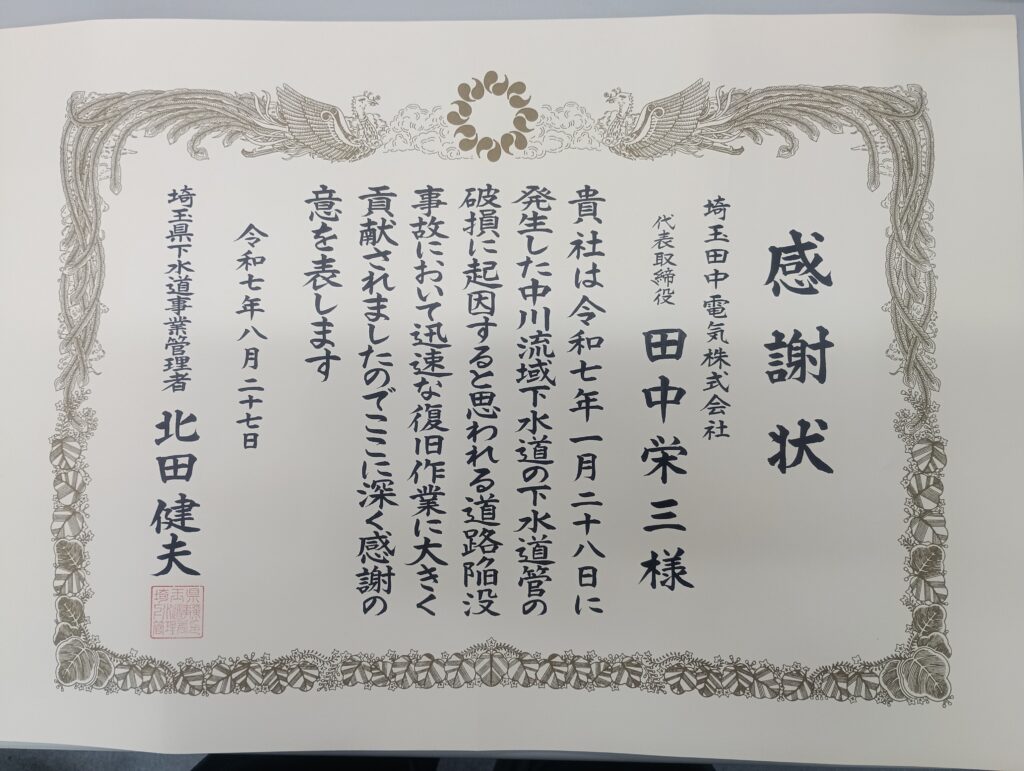 感謝状
埼玉田中電気株式会社
代表取締役 田中栄三様
貴社は令和七年一月二十八日に
発生した中川流域下水道の下水道管の
破損に起因すると思われる道路陥没
事故において迅速な復旧作業に大きく
貢献されましたのでここに深く感謝の
意を表します
令和七年八月二十七日
埼玉県下水道事業管理者 北田健夫